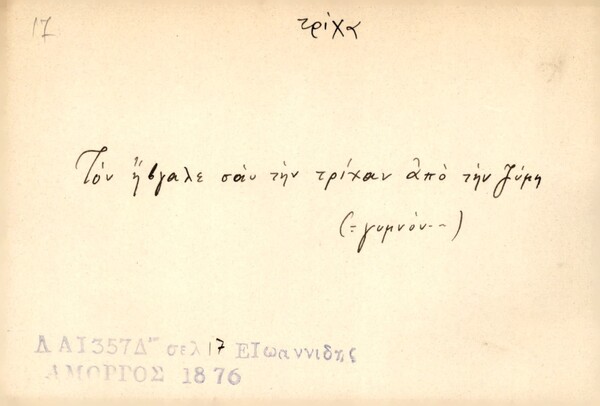 17
τρίχα
Τὸν ἤβγαλε σὰν τὴν τρίχαν ἀπὸ τὴν ζύμη
(=γυμνόν--)
ΛΑΙ357Δ" σελ 17 ΕΙωαννιδης
ΑΜΟΡΓΟΣ 1876